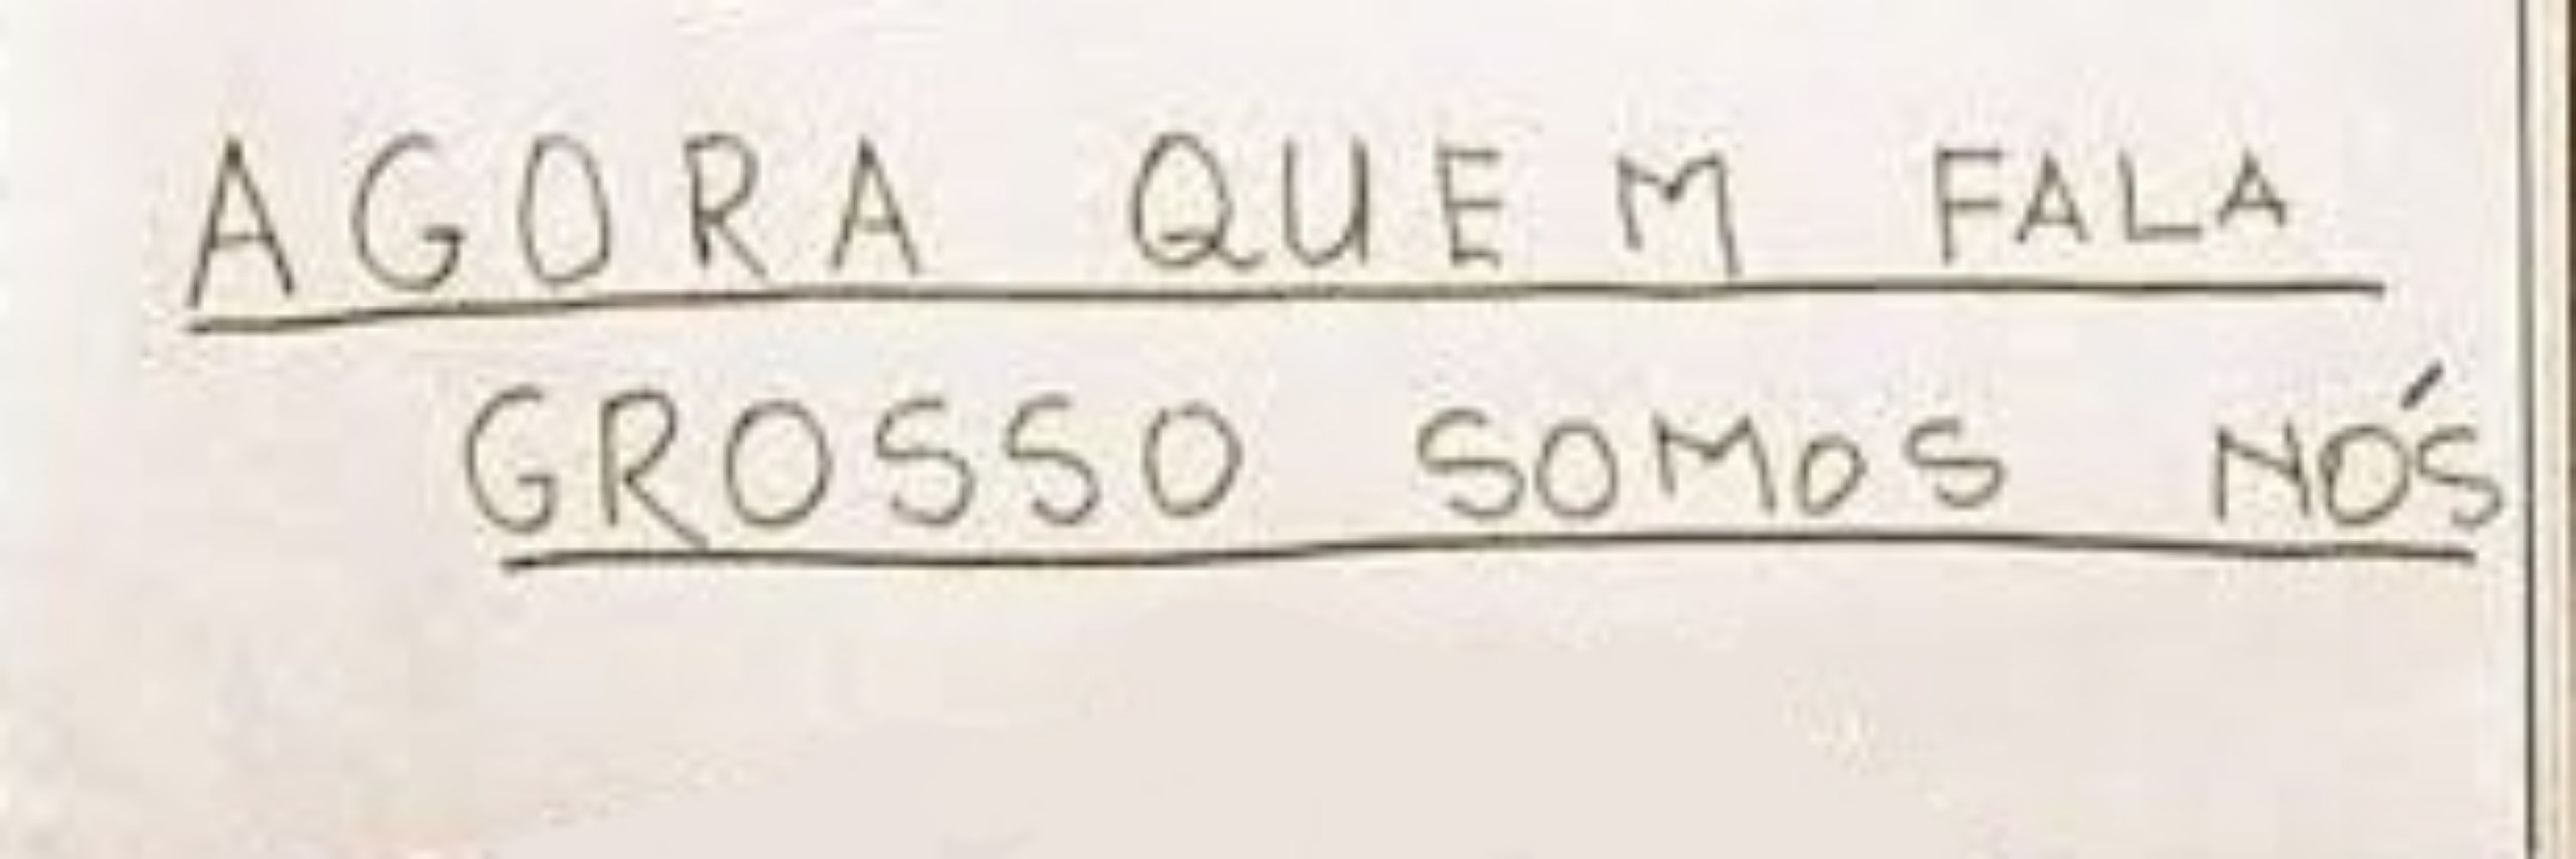 AGORA QUEM FALA
GROSSO SOMOS NÓS